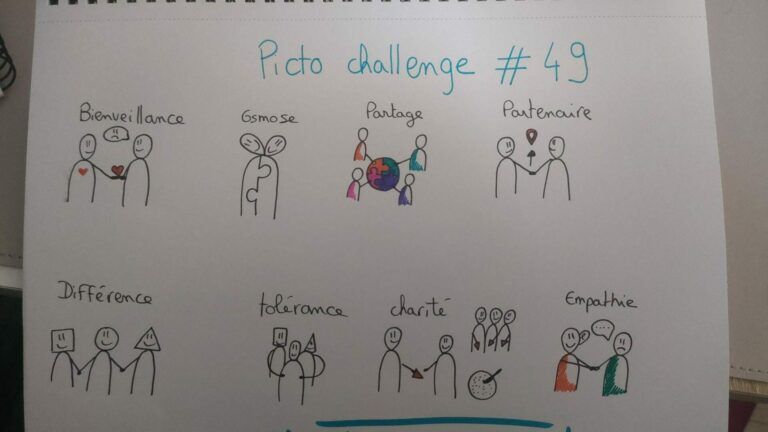 Picto challenge #49
Bienveillance
Osmose
Partage
Partenaire
Différence
tolérance
charité
Empathie